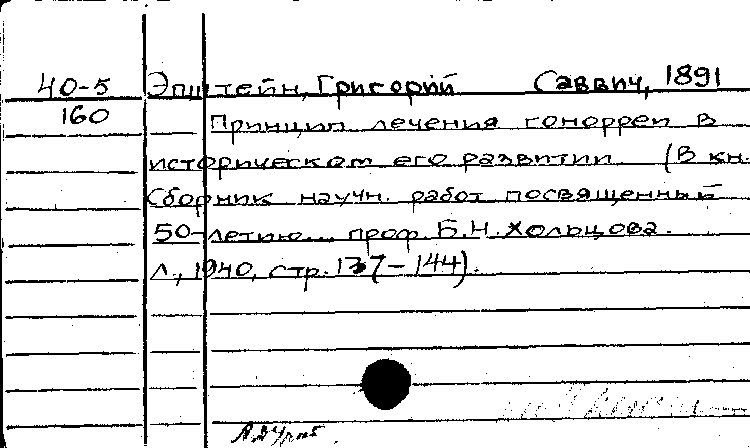 40-5 Эпштейн, Григорий Саввич, 1891
160 Принцип лечения гонорреи в
историческом его развитии (В кн.
Сборник научн. работ посвященный
50-летию... проф. Б.Н. Хольцова.
Л., 1940, стр. 137-144).